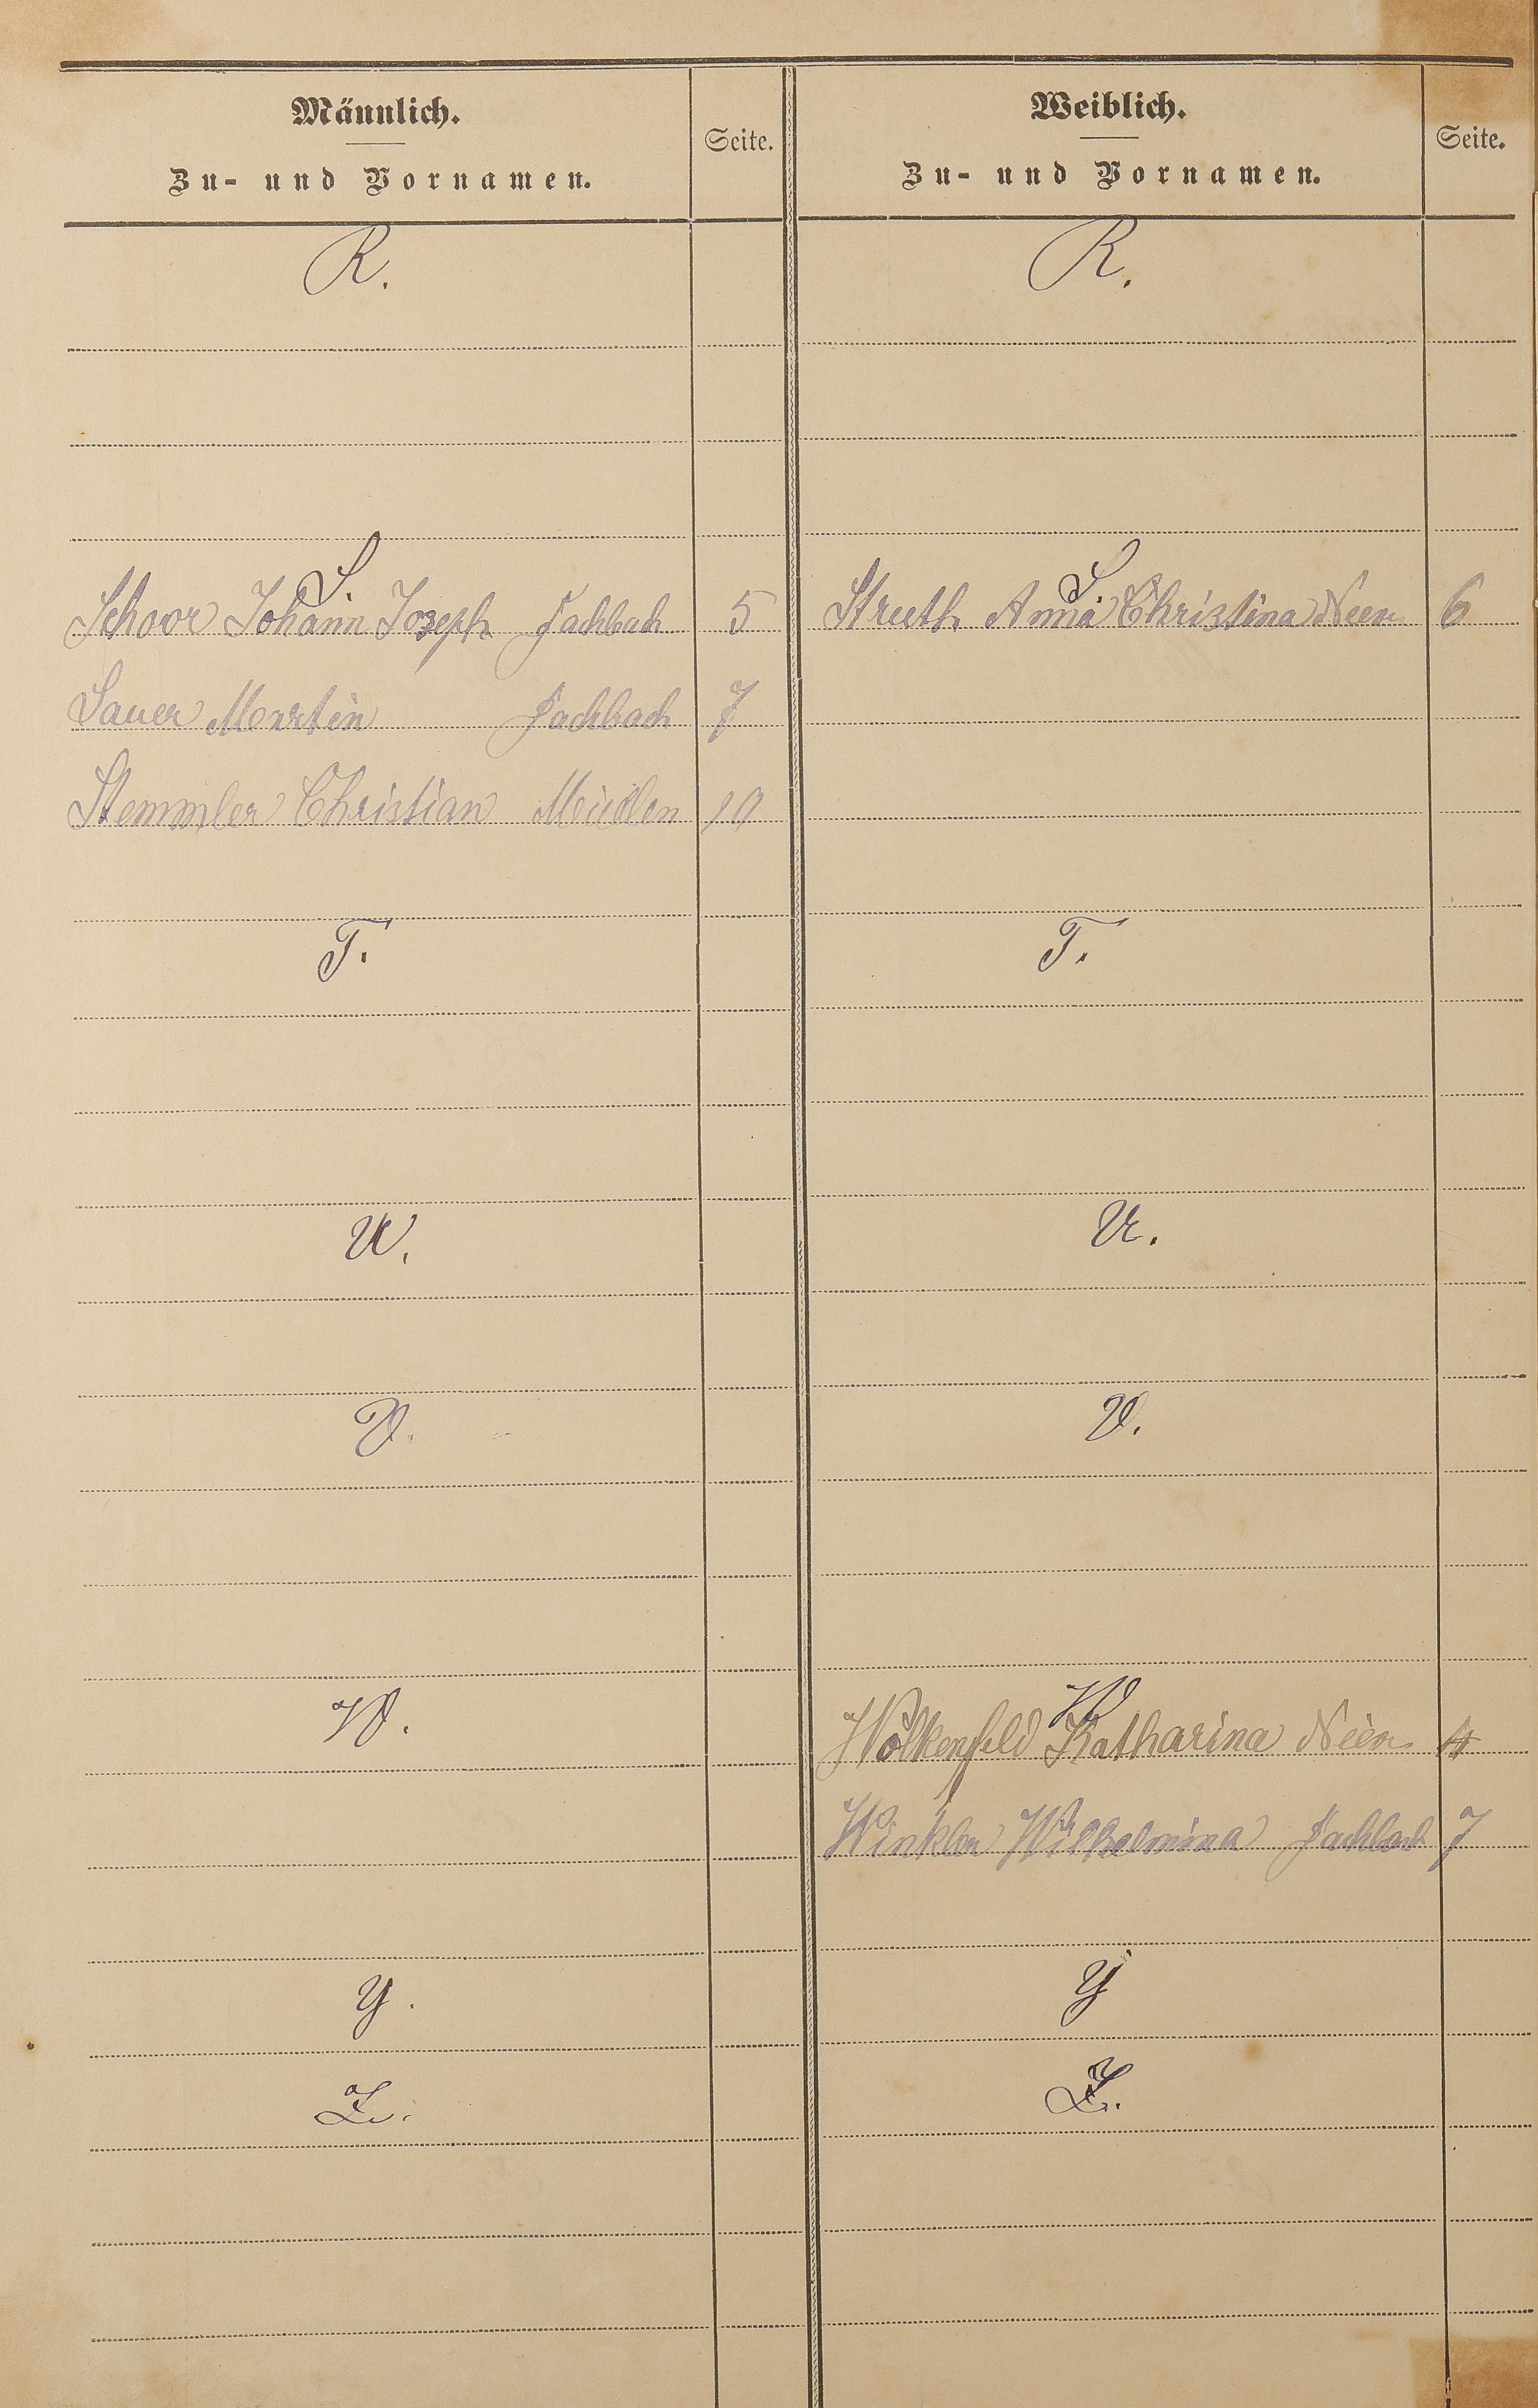 Männlich.
Zu- und Vornamen.
Seite.
Weiblich.
Zu- und Vornamen.
Seite.
R.
R.
S.
S.
Schoor Johann Joseph Fachbach 5
Struth Anna Christina Niern 6
Sauer Martin Fachbach 7
Stemmler Christian 10
T.
T.
U.
U.
V.
V.
W.
W
Wolkenfeld Katharina Niern 4
Winkler Wilhelmina Fachbach 7
Y.
Y
Z.
Z.